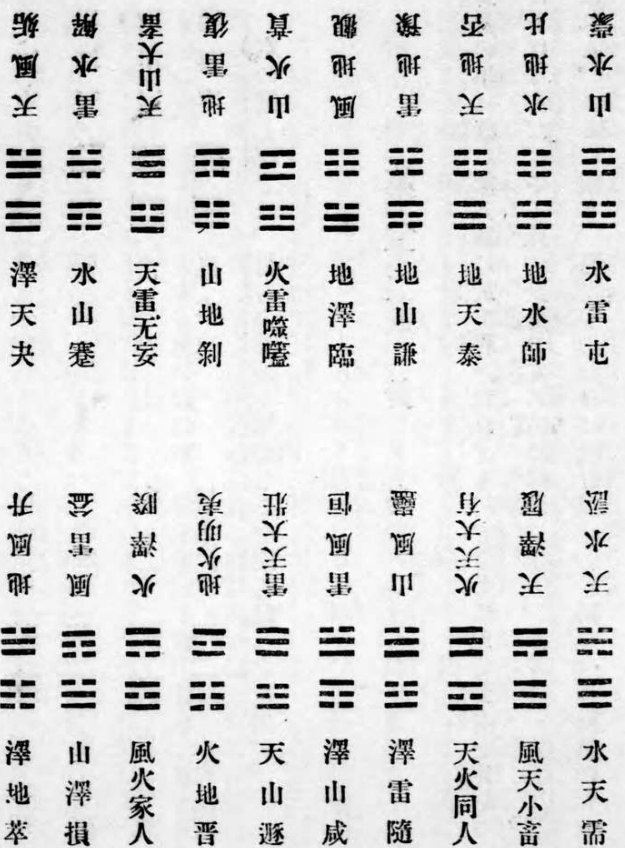 山水蒙
水地比
天地否
雷地豫
風地觀
山火賁
地雷復
天山大畜
雷水解
天風姤
水雷屯
地水師
地天泰
地山謙
地澤臨
火雷噬嗑
山地剝
天雷无妄
水山蹇
澤天夬
天水訟
天澤履
火天大有
山風蠱
雷風恒
雷天大壯
地火明夷
火澤睽
風雷益
地風升
水天需
風天小畜
天火同人
澤雷隨
澤山咸
天山遯
火地晋
風火家人
山澤損
澤地萃